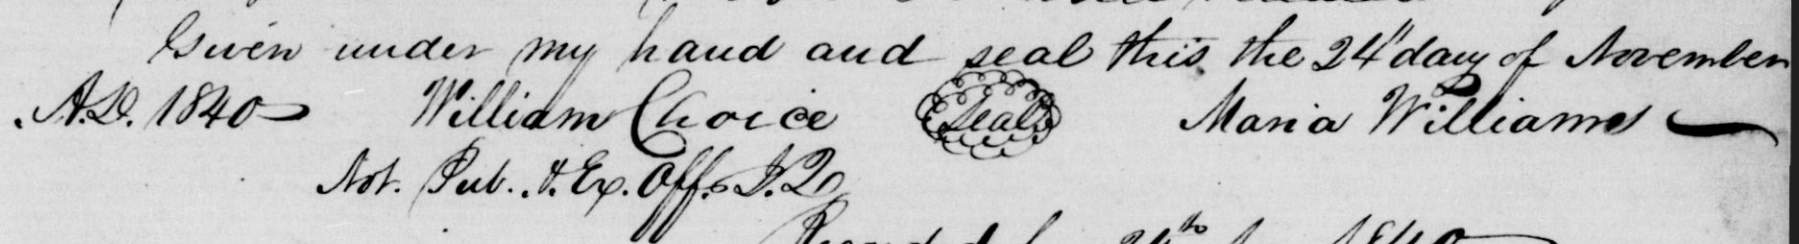 Given under my hand and seal this the 24" day of November
A.D. 1840 William Choice Seal Maria Williams
Not. Pub. & Ex. Off. J.Q.
24th 1840